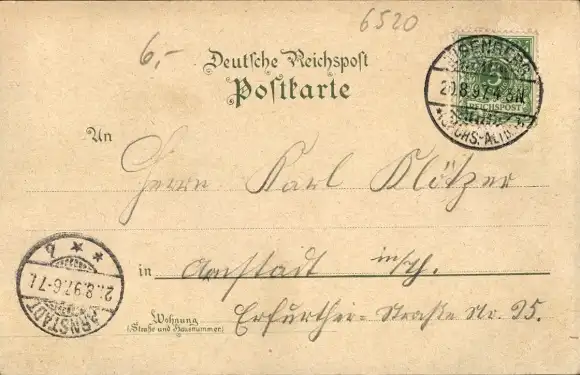 6520
6,-
Deutsche Reichspost
Postkarte
EISENBERG
20.8.97. 4-5N
* (SACHS.-ALTB.) *
REICHSPOST
An
Herrn Karl Klötzer
in Arnstadt in/Th.
Wohnung
(Straße und Hausnummer)
Erfurther-Straße Nr. 25.
ARNSTADT
21.8.97. 6-7
* * 2